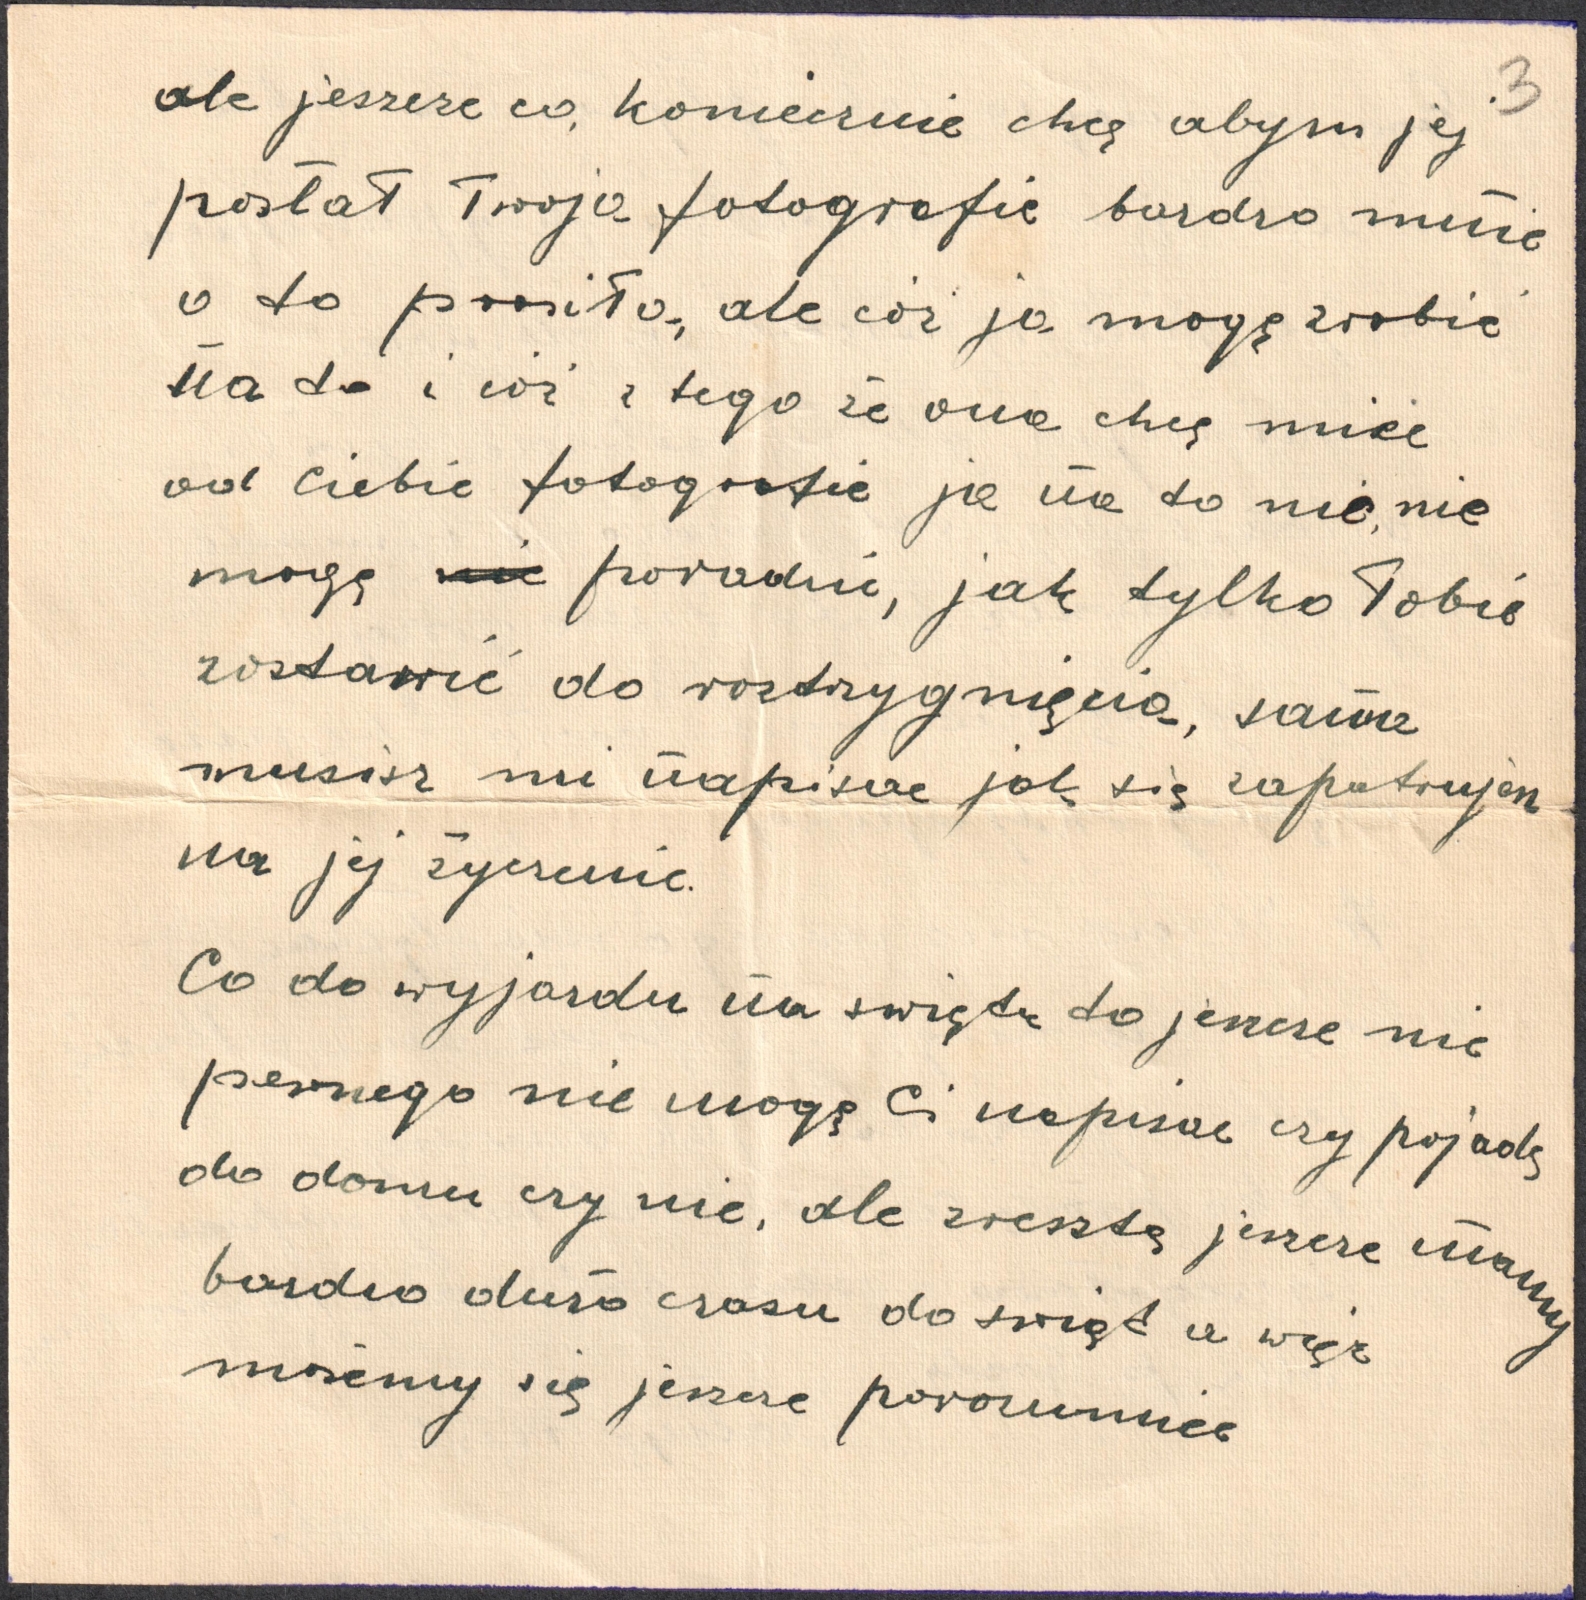 3
ale jeszcze co, koniecznie chcę abym jej
posłał Twoja fotografie bardzo mnie
o to prosiła, ale cóż ja mogę zrobić
na to i cóż z tego że ona chcę mieć
od Ciebie fotografie ja na to nic, nie
mogę nic poradzić, jak tylko Tobie
zostawić do rostrzygnięcia, sama
musisz mi napisac jak się zapatrujesz
na jej życzenie.
Co do wyjazdu na swięta to jeszcze nic
pewnego nie mogę Ci napisac czy pojadę
do domu czy nie, ale zresztą jeszcze mamy
bardzo dużo czasu do swiąt a więc
możemy się jeszcze porozumiec